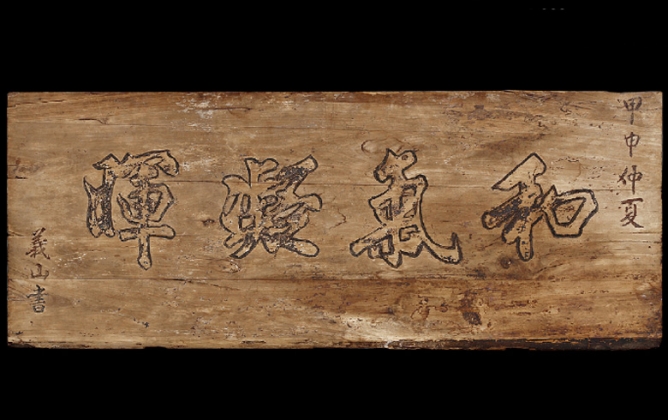 甲申仲夏
和氣凝暉
義山書